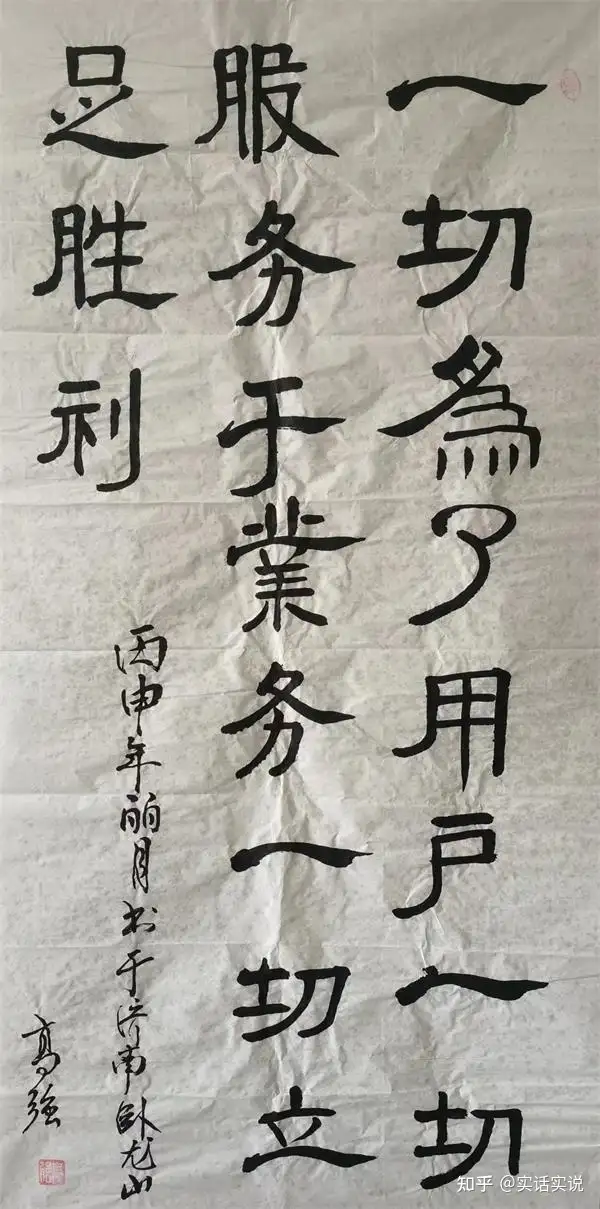 一切為了用户一切
服务于業务一切立
足胜利
丙申年丽月书于济南卧龙山
高強
知乎 @实话实说